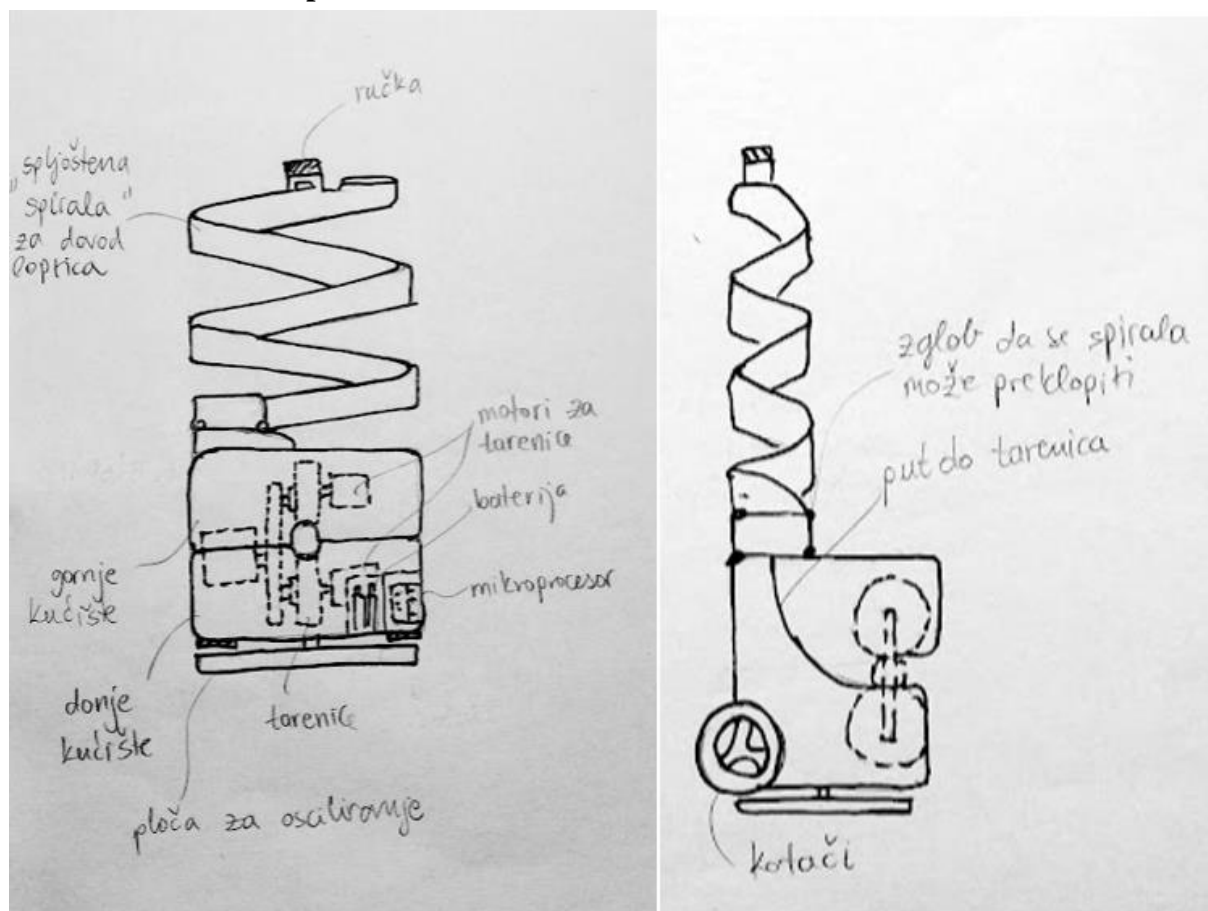 ručka
„spljoštena
spirala“
za dovod
loptica
motori za
tarenice
baterija
mikroprocesor
gornje
kućište
donje
kućište
tarenice
ploča za osciliranje
zglob da se spirala
može preklopiti
put do tarenica
kotači